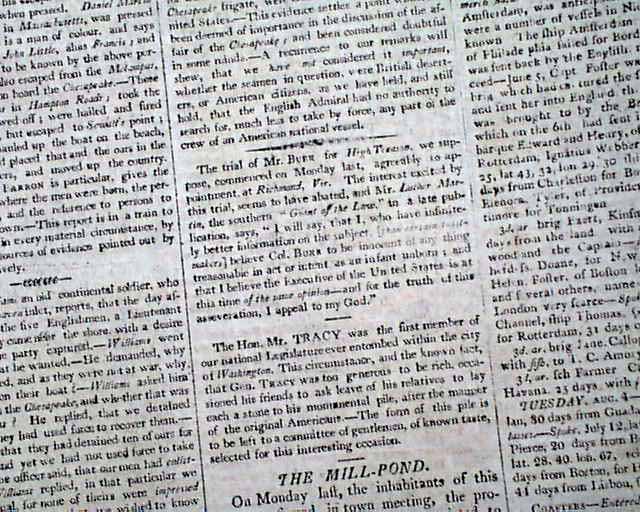 when pressed. Daniel Martin
in Massachusetts, was pressed
is a man of colour, and says
John Little, alias Francis; and
to be known by the above per-
so escaped from the Melampus,
on board the Chesapeake.—Those
in Hampton Roads; took the
wed off; were hailed and fired
but escaped to Sewall's point;
hauled up the boat on the beach,
d placed that and the oars in the
ers, and moved up the country.
BARRON is particular, gives the
where the men were born, the per-
and the reference to persons to
own—This report is in a train to
in every material circumstance, by
sources of evidence pointed out by
vely.
an old continental soldier, who
inlet, reports, that the day af-
the five Englishmen, a Lieutenant
came near the shore, with a desire
party captured.—Williams went
at he wanted.—He demanded, why
ed, and as they were not at war, why
their boat?—Williams asked him
the Chesapeake, and whether that was
? He replied, that we detained
they had used force to recover them.—
that they had detained ten of ours for
and yet we had not used force to take
he officer said, that our men had enlist-
Williams replied, in that particular we
for none of theirs were impressed
we wished to know
Chesapeake frigate,
nited States.—This evidence settles a point
been deemed of importance in the discussion of the af-
fair of the Chesapeake; and been considered doubtful
in some minds.—A recurrence to our remarks will
shew, that we have not considered it important,
whether the seamen in question, were British desert-
ers, or American citizens, as we have held, and still
hold, that the English Admiral had no authority to
search for, much less to take by force, any part of the
crew of an American national vessel.
The trial of Mr. BURR for High Treason, we sup-
pose, commenced on Monday last, agreeably to ap-
pointment, at Richmond, Vir. The interest excited by
this trial, seems to have abated, and Mr. Luther Mar-
tin, the southern "Giant of the Law," in a late pub-
lication, says, "I will say, that I, who have infinite-
ly better information on the subject,
believe Col. BURR to be innocent of any thing
treasonable in act or intent as an infant unborn; and
that I believe the Executive of the United States is at
this time of the same opinion—and for the truth of this
asseveration, I appeal to my God."
The Hon. Mr. TRACY was the first member of
our national Legislature ever entombed within the city
of Washington. This circumstance, and the known fact,
that Gen. TRACY was too generous to be rich, occa-
sioned his friends to ask leave of his relatives to lay
each a stone to his monumental pile, after the manner
of the original Americans.—The form of this pile is
to be left to a committee of gentlemen, of known taste,
selected for this interesting occasion.
THE MILL-POND.
On Monday last, the inhabitants of this
in town meeting, the pro-
Amsterdam, was
were a number of vessels in
known The ship Amsterdam
of Philadelphia sailed for
was sent back by the English
ceed—June 5, Capt. Foster
brig which had captured the
and sent her into England,
was brought to by the
which on the 6th had sent
barque Edward and Henry,
Rotterdam, Ignatius Webber
25, lat 43, 32, lon 29, 30
days from Charleston for
Elenora, of Providence
timore for Tonningen
3d, ar. brig
days from the land with
wood and the Captain
Doane, for N.
Helen, Foster, of Boston
and several others, name
London very scarce—Spoke
Channel, ship Thomas,
for Rotterdam, 31 days
3d, ar. brig Lane, Callop
with fish, to T. C. Amo
3d, ar. sch Farmer
Havana 23 days, with
TUESDAY, AUG. 4—
80 days from
lasses.—Spoke, July 12,
Pierce, 20 days from
lat. 28. 40. lon. 67,
days from Boston, for
41 days from Lisbon,
COASTERS—Entered